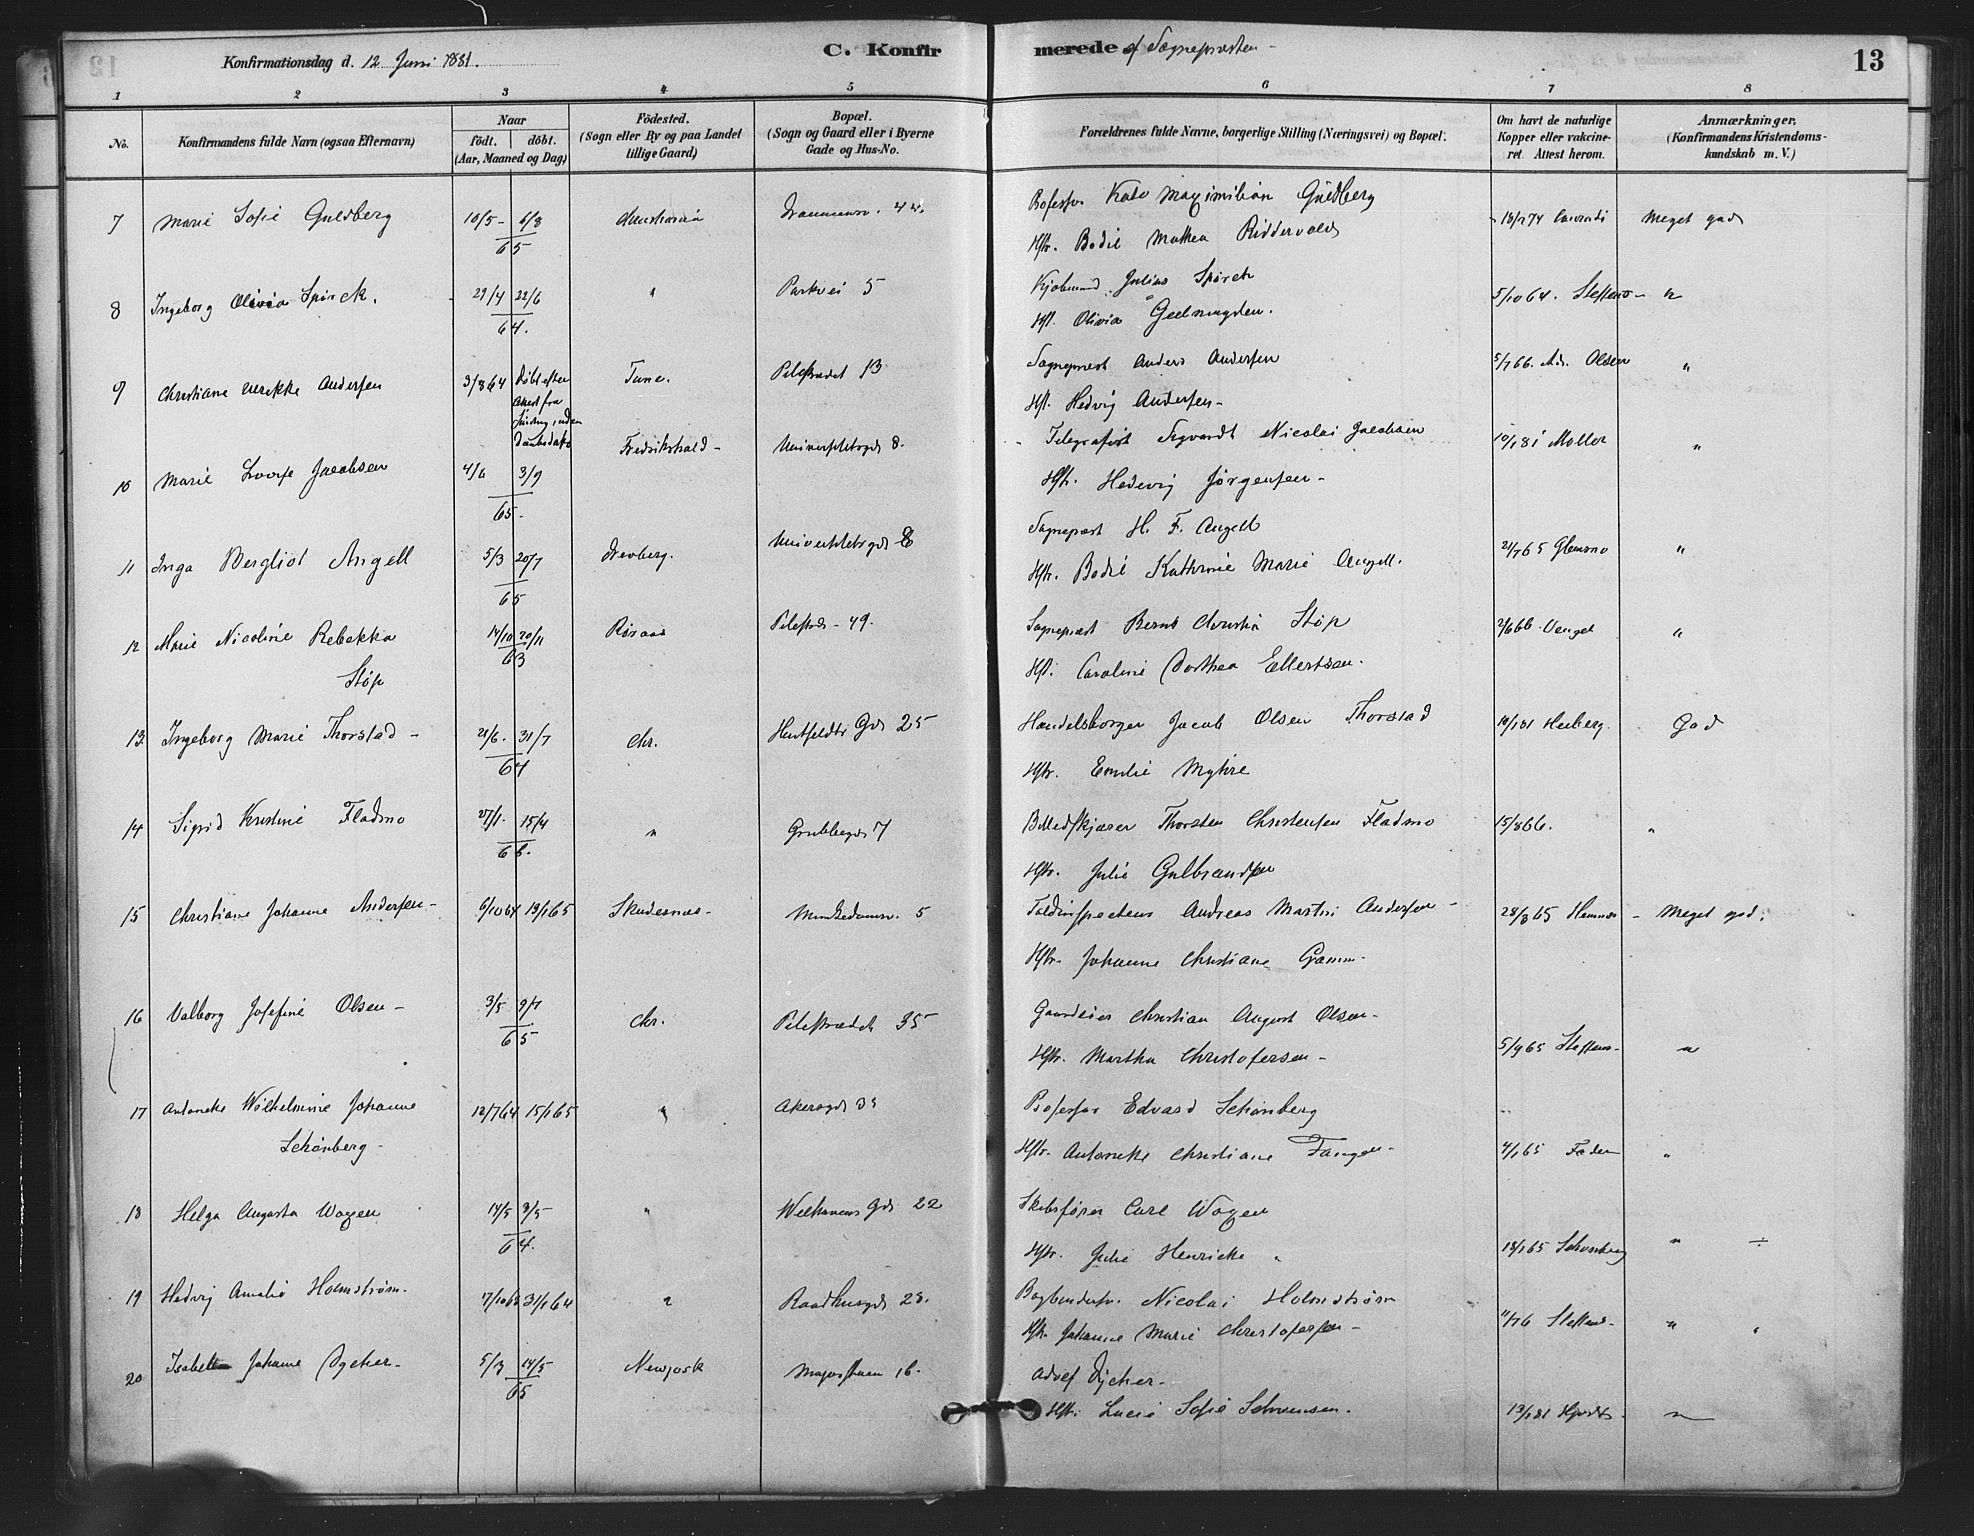 Konfirmationsdag d. 12 Juni 1881.
C. Konfirmerede af Sognepræsten
13
1 2 3 4 5 6 7 8
No.
Konfirmandens fulde Navn (ogsaa Efternavn)
Naar
födt. döbt.
(Aar, Maaned og Dag)
Födested.
(Sogn eller By og paa Landet
tillige Gaard)
Bopæl.
(Sogn og Gaard eller i Byerne
Gade og Hus-No.
Forældrenes fulde Navne, borgerlige Stilling (Næringsvei) og Bopæl.
Om havt de naturlige
Kopper eller vakcine-
ret. Attest herom.
Anmærkninger,
(Konfirmandens Kristendoms-
kundskab m. V.)
7 Marie Sofie Guldberg 10/5 - 6/8 65 Christiania 44. Kato Maximilian Guldberg
Hstr. Bodil Mathea Riddervold 18/1 74 Meget god
8 Ingeborg Olivia Spörck. 29/4 22/6 64. " Parkvei 5 Kjøbmand Julius Spörck
Hst. Olivia 5/10 64. Steffens - "
9 Christiane Ulrikke Andersen 3/8 64 Døbt efter
Attest fra
uden
Daabsdato
Tune. Pilestrædet 13 Sognepræst Anders Andersen
Hst. Hedvig Andersen - 5/7 66. Olsen "
10 Marie Lovise Jacobsen 4/6 3/9 65. Fredrikshald - Universitetsgd 8. Telegrafist Sigvardt Nicolai Jacobsen
Hstr. Hedevig Jørgensen - 10/1 81 Møller "
11 Inga Bergliot Angell 5/3 20/7 65 Universitetsgd 8 Sognepræst H. F. Angell
Hstr. Bodil Kathrine Marie Angell. 21/7 65 "
12 Marie Nicoline Rebekka
Støp
14/10 20/11 63 Röraas Pilestræd - 49. Sognepræst Bernt Christian Støp
Hst. Caroline Dorthea Ellertsen. "
13. Ingeborg Marie Thorstad - 21/6. 31/7 64 Chr. Huitfeldts Gd 25 Handelsborger Jacob Olsen Thorstad
Hstr. Emilie Myhre Heiberg. God
14 Sigrid Kristine Fladmo 27/1. 15/4 66. " Grubbegd 7 Billedskjærer Thorsten Christensen Fladmo
Hstr. Julie Gulbrandsen 15/8 66. "
15 Christiane Johanne Andersen - 6/10 64 19/1 65 Skudesnæs - Munkedamsv. 5 Toldinspecteur Andreas Martin Andersen -
Hstr. Johanne Christiane Gamm - 28/8 65 - Meget god.
16 Valborg Josefine Olsen - 3/5 9/7 65 Chr. Pilestrædet 35 Gaardeier Christian August Olsen -
Hstr. Martha Christofersen - 5/9 65 Steffens - "
17 Antonette Wilhelmine Johanne
Schönberg -
12/7 64 15/1 65 " Akersgd 35 Professor Edvard Schönberg
Hstr. Antonette Christiane Fangen - 4/1 65 Faderen "
18 Helga Augusta Wogen 14/5 64. " Welhavens Gd 22 Skibsfører Carl Wogen
Hstr. Julie Henriette " 18/1 65 Schönberg " ÷
19 Hedvig Amalie Holmström. 17/10 63 31/1 64 " Raadhusgd 28. Bogbinderm. Nicolai Holmström
Hstr. Johanne Marie Christofersen - Steffens - " "
20 Isabella Johanne Dycker - 5/3 14/5 65 Newyork 16. Adolf Dycker -
Hstr. Lucie Sofie 13/1 81 "